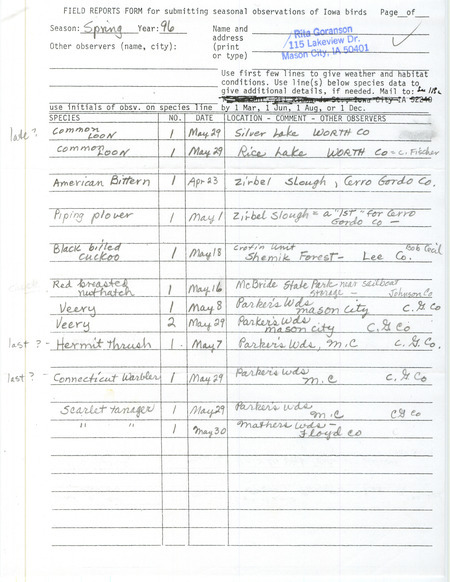 FIELD REPORTS FORM for submitting seasonal observations of Iowa birds Page__of__
Season: Spring Year: 96 Name and
address
(print
or type)
Rita Goranson
115 Lakeview Dr.
Mason City, IA 50401
Other observers (name, city):
Use first few lines to give weather and habitat
conditions. Use line(s) below species data to
give additional details, if needed. Mail to:
Iowa City IA 52240
use initials of obsv. on species line by 1 Mar, 1 Jun, 1 Aug, or 1 Dec.
SPECIES NO. DATE LOCATION - COMMENT - OTHER OBSERVERS
late? Common Loon 1 May 29 Silver Lake WORTH CO
Common Loon 1 May 29 Rice Lake WORTH Co - C. Fischer
American Bittern 1 Apr 23 Zirbel Slough, Cerro Gordo Co.
Piping plover 1 May 1 Zirbel Slough = a "1ST" for Cerro
Gordo Co -
Black billed cuckoo 1 May 18 Croton Unit Bob Cecil
Shemik Forest - Lee Co.
Red breasted nuthatch 1 May 16 McBride State Park near sailboat
storage - Johnson Co
Veery 1 May 8 Parker's Wds Mason City C. G Co
Veery 2 May 29 Parker's Wds Mason City C. G Co
last? - Hermit Thrush 1 May 7 Parker's Wds, M.C C. G Co.
last? - Connecticut Warbler 1 May 29 Parker's Wds M.C C. G Co
Scarlet tanager 1 May 29 Parker's Wds M.C C G Co
" " 1 May 30 Mathers Wds -
Floyd Co